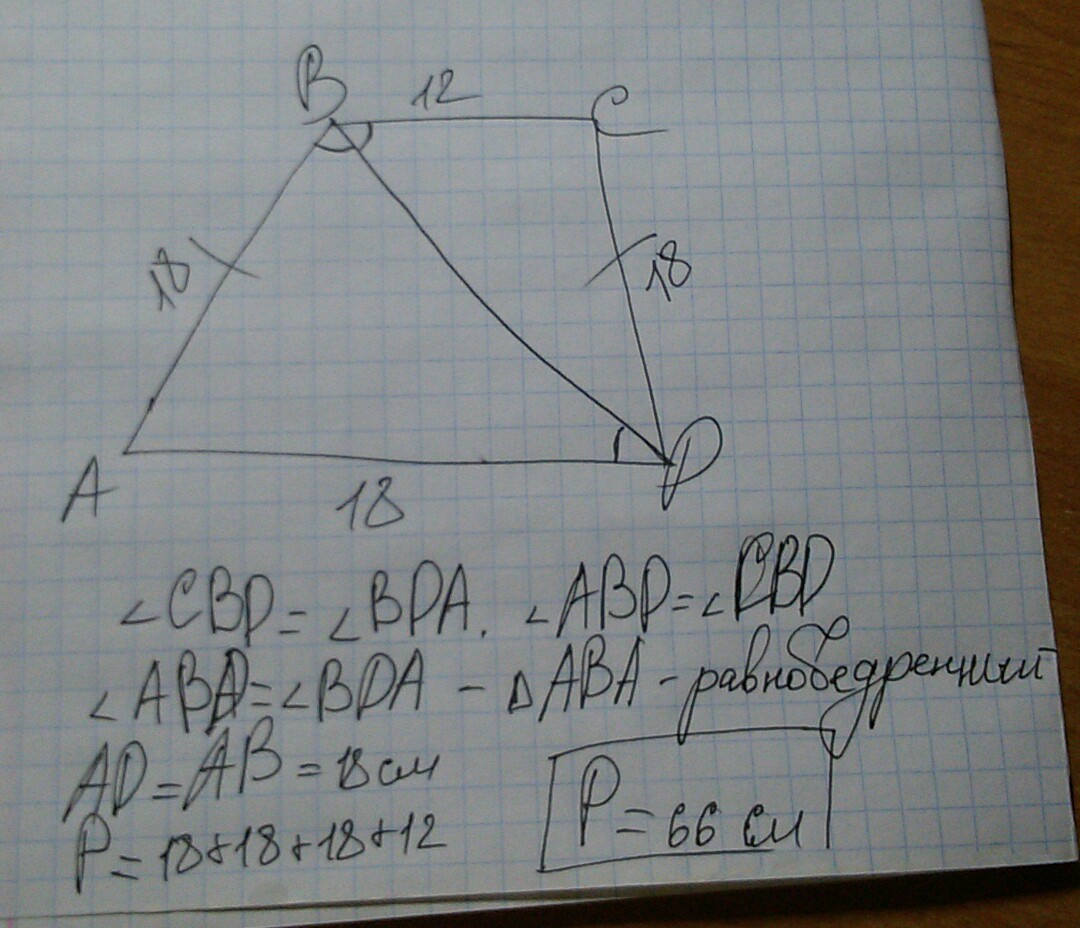 B 12 C
18 18
A 18 D
∠CBD = ∠BDA. ∠ABD = ∠CBD
∠ABD = ∠BDA – ∆ABA - равнобедренный
AD = AB = 18 см
P = 18+18+18+12
P = 66 см